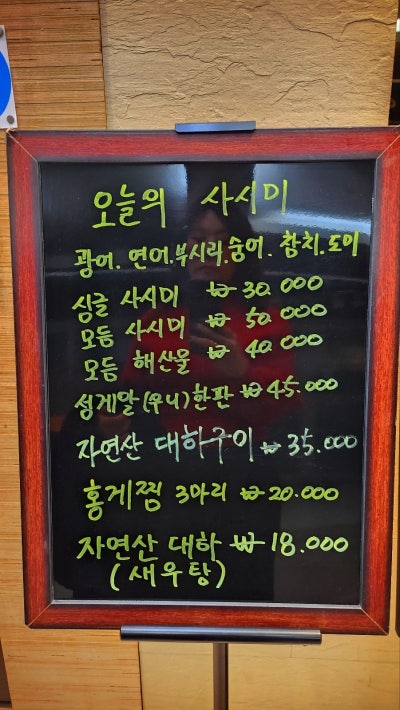 오늘의 사시미
광어. 연어. 부시리. 숭어. 참치. 도미
싱글 사시미 ₩ 30.000
모듬 사시미 ₩ 50.000
모듬 해산물 ₩ 40.000
성게알 (우니) 한판 ₩ 45.000
자연산 대하구이 ₩ 35.000
홍게찜 3마리 ₩ 20.000
자연산 대하 ₩ 18.000
(새우탕)